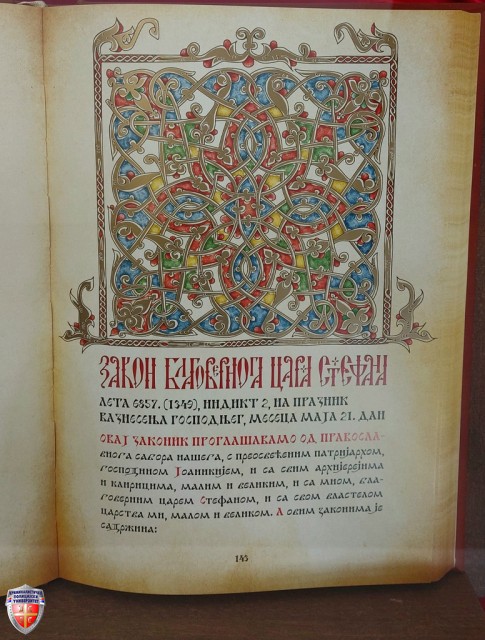 ЗАКОН БЛАГОВЕРНОГА ЦАРА СТЕФАНА
ЛЕТА 6857. (1349), ИНДИКТ 2, НА ПРАЗНИК
ВАЗНЕСЕЊА ГОСПОДЊЕГ, МЕСЕЦА МАЈА 21. ДАН
ОВАЈ ЗАКОНИК ПРОГЛАШАВАМО ОД ПРАВОСЛА-
внога сабора нашега, с преосвећеним патријархом,
господином Јоаникијем, и са свим архијерејима
и клирицима, малим и великим, и са мном, бла-
говерним царем Стефаном, и са свом властелом
царства ми, малом и великом. А овим законима је
садржина:
145
КРИМИНАЛИСТИЧКО
ПОЛИЦИЈСКИ
УНИВЕРЗИТЕТ